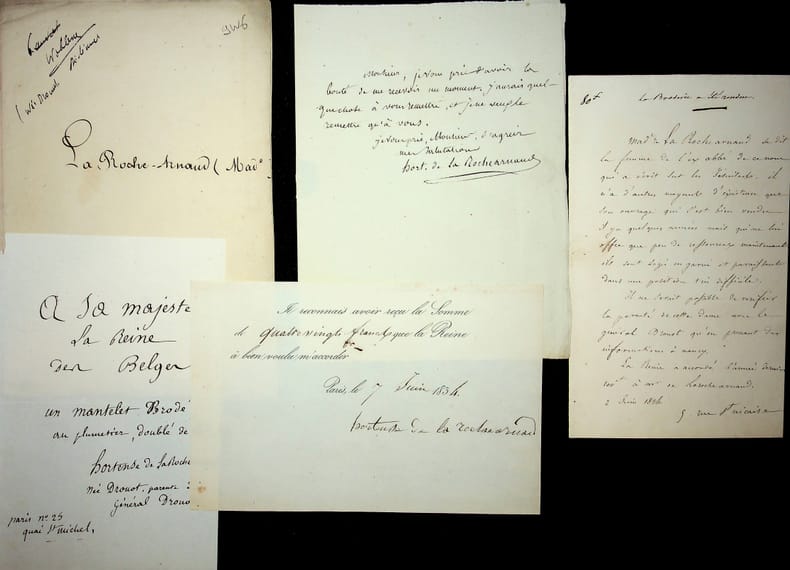 9W6
(née Drouot
La Roche-Arnaud (Mad^e
Monsieur, je vous prie d'avoir la
bonté de me recevoir un moment, j'aurais quel-
que chose à vous remettre, et je ne veux le
remettre qu'à vous.
je vous prie, Monsieur, d'agréer
mes salutations
hort. de la Rochearnaud
80f
Mad^e de La Rochearnaud se dit
la femme de l'ex abbé de ce nom
qui a écrit sur les Jésuites. il
n'a d'autres moyens d'existence que
son ouvrage qui s'est bien vendu
il y a quelques années mais qui ne lui
offre que peu de ressources maintenant
ils sont logés en garni et paraissent
dans une position très difficile.
Il ne serait possible de vérifier
la parenté de cette dame avec le
général Drouot qu'en prenant des
informations à nancy.
La Reine a accordé l'année dernière
100f à M^e de Larochearnaud.
2 Juin 1834
5 rue St nicaise
A Sa majesté
La Reine
Des Belges
un mantelet Brodé
au plumetier, doublé de
hortense de LaRoche
Née Drouot, parente
Général Drouo
paris n° 25
quai St michel,
Je reconnais avoir reçu la Somme
de quatre vingts francs que la Reine
a bien voulu m'accorder
Paris, le 7 Juin 1834.
hortense de la rochearnaud